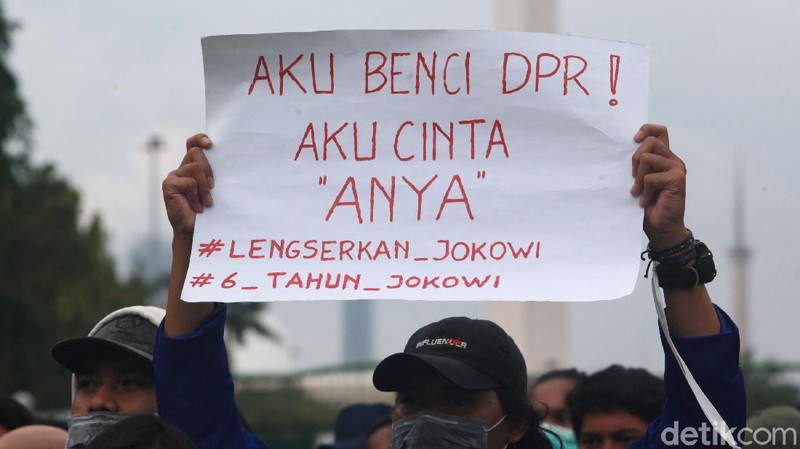 AKU BENCI DPR!
AKU CINTA
"ANYA"
#LENGSERKAN_JOKOWI
#6_TAHUN_JOKOWI
INFLUENCER
detikcom